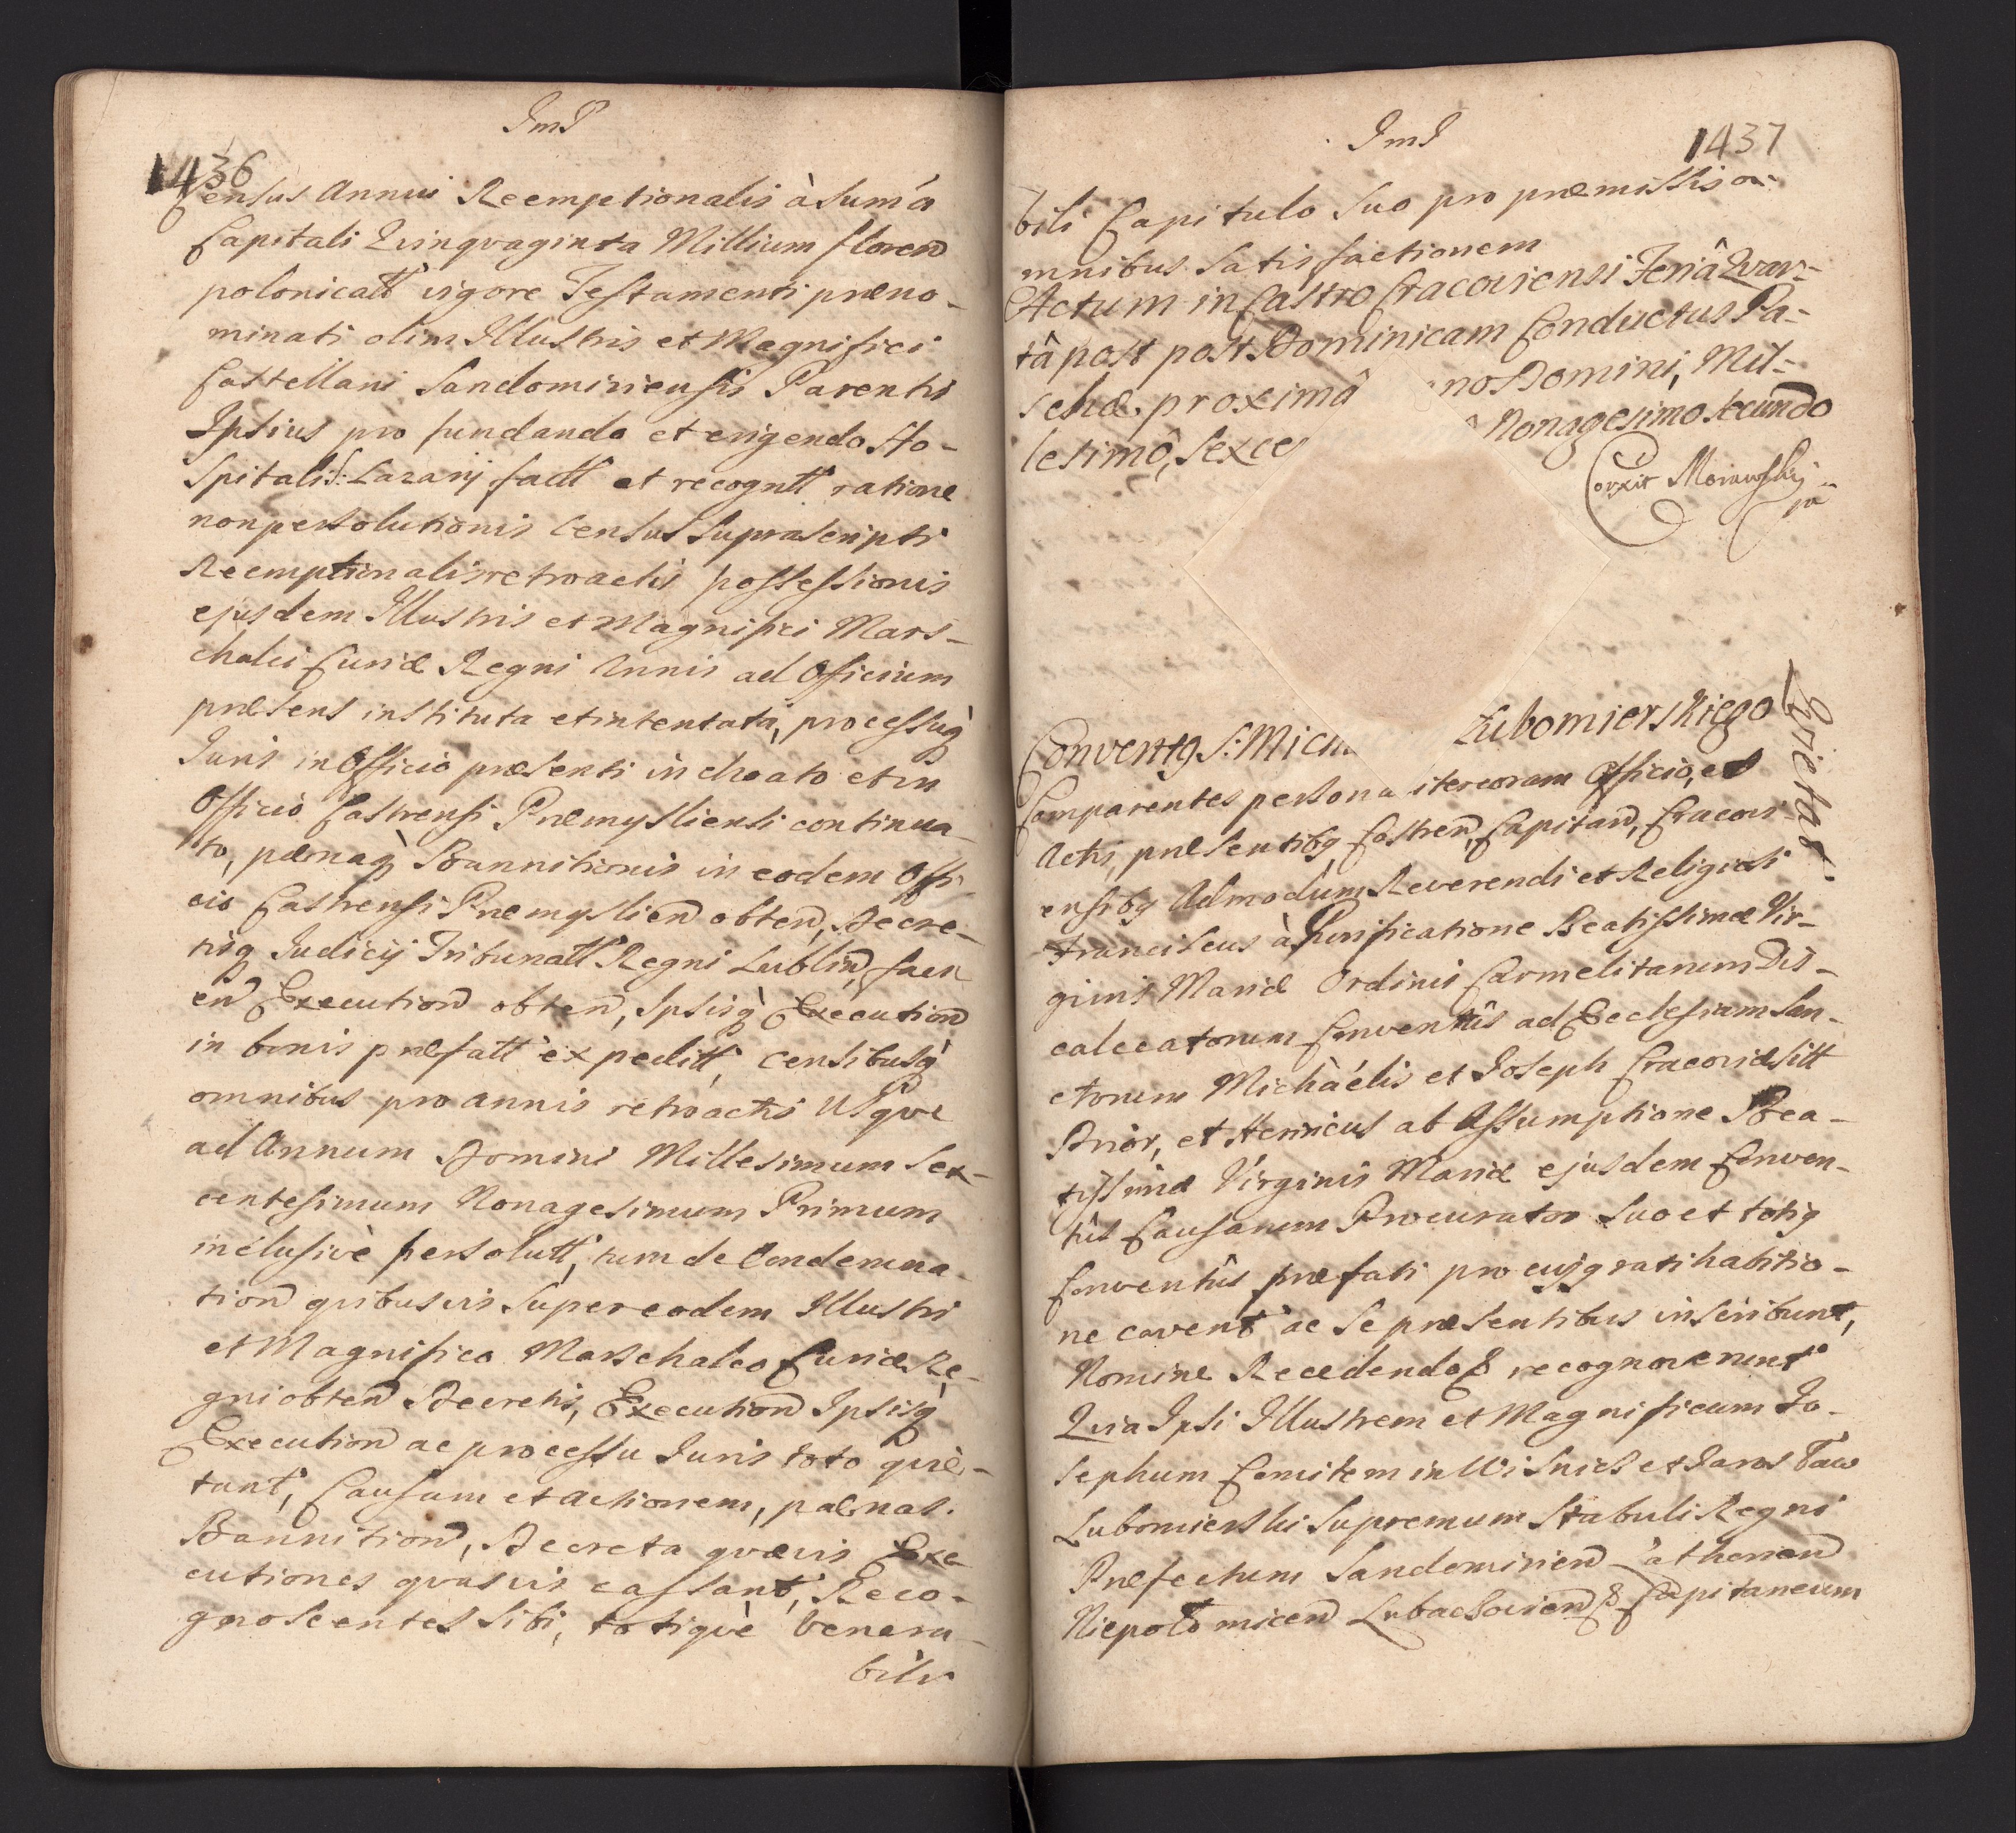 JmJ
1436
Census Annui Reemptionalis à suma
Capitali Quinqvaginta Millium floren
polonicall vigore Testamenti præno-
minati olim Illustris et Magnifici
Castellani Sandomiriensis Parentis
Ipsius pro fundando et erigendo Ho-
spitali S: Lazarij fact et recognit ratione
non persolutionis Census suprascripti
Reemptionalis retroactis possessionis
ejusdem Illustris et Magnifici Mars-
chalci Curiæ Regni Annis ad Officium
præsens instituta et intentata, processuq
Juris in Officio præsenti inchoato et in
Officio Castrensi Præmysliensi continua-
to, pænaq Bannitionis in eodem Offi-
cio Castrensi Præmyslien obten, Decre-
tisq Judicij Tribunall Regni Lublin, faci
en Execution obten, Ipsisq Execution
in bonis præfatt expeditt, censibusq
omnibus pro annis retroactis Usqve
ad Annum Domini Millesimum Sex-
centesimum Nonagesimum Primum
inclusivè persolutt, tum de Condemna-
tion qvibusvis super eodem Illustri
et Magnifico Marschalco Curiæ Re-
gni obten Decretis, Execution Ipsisq
Execution ac processu Juris toto qvie-
tant, Causam et actionem, pænas.
Bannition, Decreta qvævis Exe
cutiones qvasvis cassant, Reco-
gnoscentes sibi, totiqve Venera-
bili
JmJ
1437
bili Capitulo Suo pro præmissis o-
mnibus Satisfactionem
Actum in Castro Cracoviensi Feriâ Qvar-
tâ post post Dominicam Conductus Pa-
schæ. proximâ no Domini, Mil-
lesimô, Sexce Nonagesimo Secundo
Corrxit Morawski
Conventq S: Mich Lubomierskiego
Qvietat.
Comparentes persona itercoram Officio, et
Actis, præsentibq Castren, Capitan, Cracovi-
ensibq Admodum Reverendi et Religiosi
Franciscus à Purificatione Beatissimæ Vir-
ginis Mariæ Ordinis Carmelitarum Dis-
calceatorum Conventûs ad Ecclesiam San-
ctorum Michaélis et Joseph Cracoviæ sitt
Prior, et Henricus ab Assumptione Bea-
tissimæ Virginis Mariæ ejusdem Conven-
tûs Causarum Procurator Suo et totiq
Conventûs præfati pro cujq ratihabitio-
ne cavent ac Se præsentibus inscribunt,
Nomine Recedendo & recognoverunt
Qvia Ipsi Illustrem et Magnificum Jo-
sephum Comitem in Wisnicz et Jarosław
Lubomierski Supremum Stabuli Regni
Præfectum Sandomirien Zathorien
Niepołomicen Lubaczovien & Capitaneum